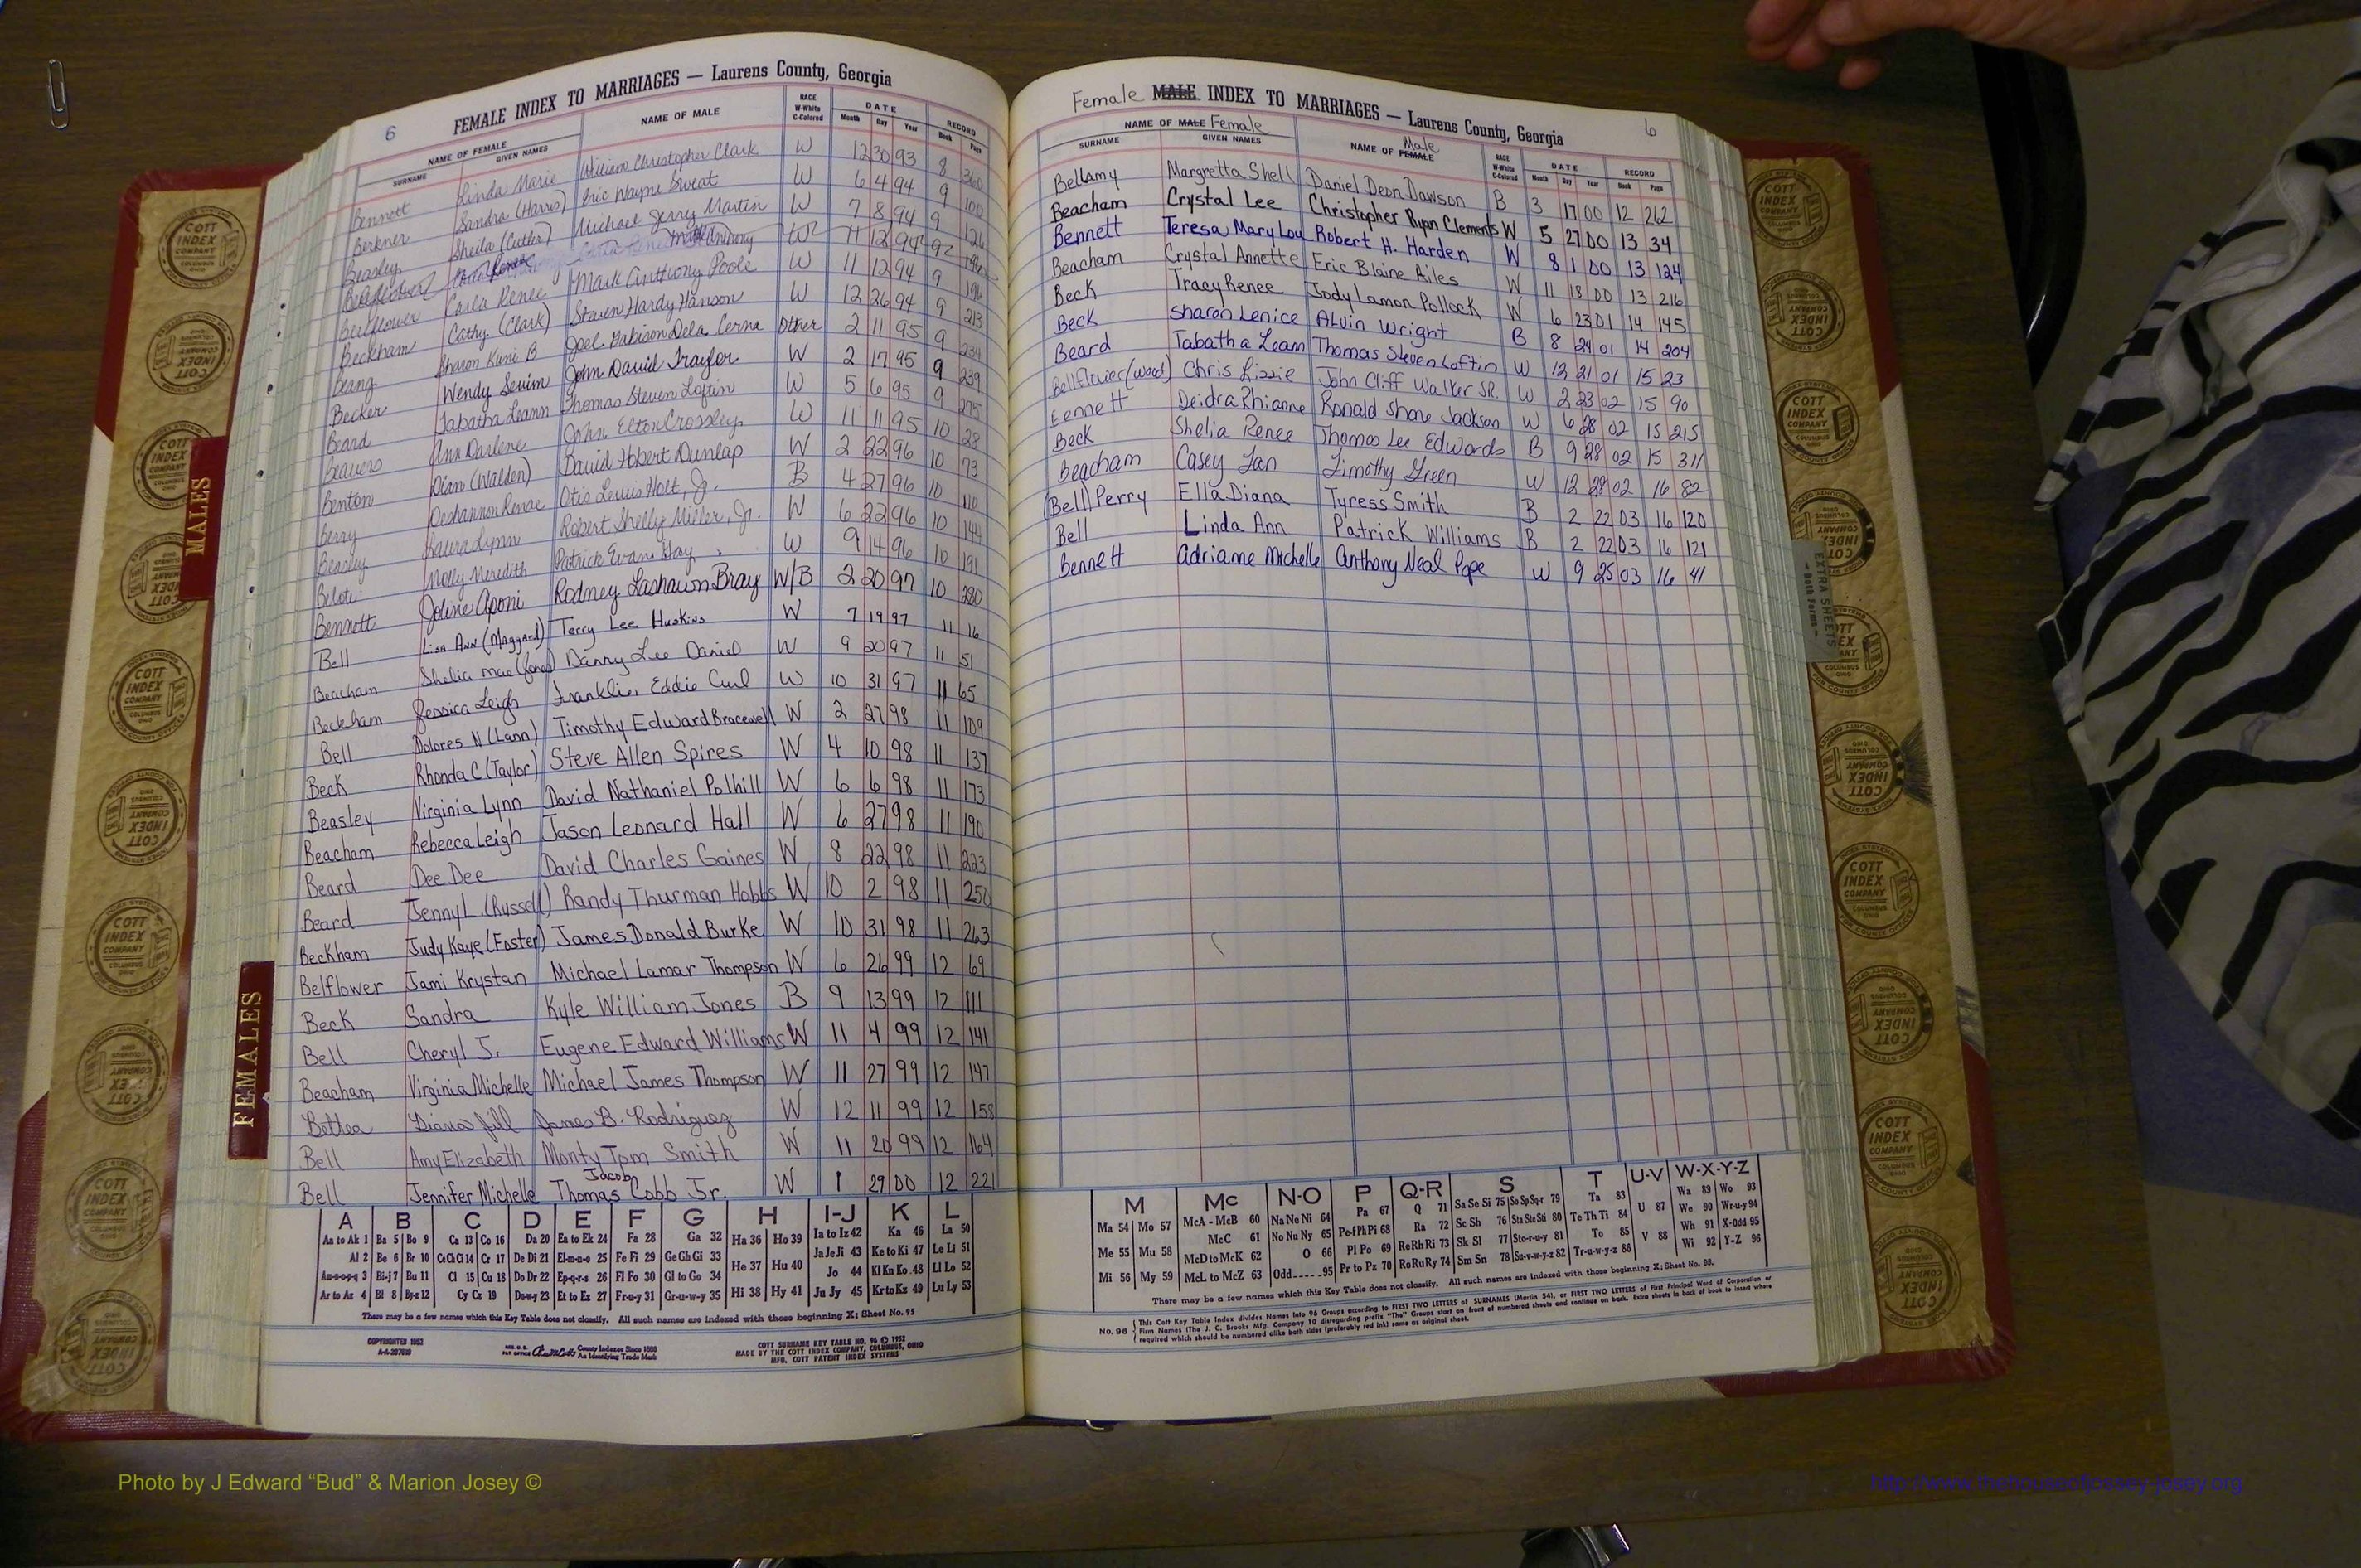 6 FEMALE INDEX TO MARRIAGES — Laurens County, Georgia
NAME OF FEMALE NAME OF MALE RACE W-White C-Colored DATE RECORD
SURNAME GIVEN NAMES Month Day Year Book Page
Bennett Linda Marie William Christopher Clark W 12 30 93 8 360
Berkner Sandra (Harris) Eric Wayne Sweat W 6 4 94 9 100
Beasley Sheila (Cutler) Michael Jerry Martin W 7 8 94 9 126
Anthony W 11 12 94
Bellflower Carla Renee Mark Anthony Poole W 11 12 94 9 196
Beckham Cathy (Clark) Steven Hardy Hanson W 12 26 94 9 213
Being Sharon Kimi B Joel Dela Cerna Other 2 11 95 9 234
Becker Wendy John David Traylor W 2 17 95 9 239
Beard Tabatha Leann Thomas Steven Loftin W 5 6 95 9 275
Beavers Ann Darlene John Elton Crossley W 11 11 95 10 28
Benton Dian (Walden) David Hobert Dunlap W 2 22 96 10 73
Berry Deshannon Renae Otis Lewis Holt, Jr. B 4 27 96 10 110
Beasley Laura Lynn Robert Shelly Miller, Jr. W 6 22 96 10 144
Belote Molly Meredith Patrick Evans Gay W 9 14 96 10 191
Bennett Joline Aponi Rodney Lashawn Bray W/B 2 20 97 10 280
Bell Lisa Ann (Maggard) Terry Lee Huskins W 7 19 97 11 16
Beacham Shelia Mae (Jones) Danny Lee Daniel W 9 20 97 11 51
Beckham Jessica Leigh Franklin Eddie Curl W 10 31 97 11 65
Bell Dolores N (Lann) Timothy Edward Bracewell W 2 27 98 11 109
Beck Rhonda C (Taylor) Steve Allen Spires W 4 10 98 11 137
Beasley Virginia Lynn David Nathaniel Polhill W 6 6 98 11 173
Beacham Rebecca Leigh Jason Leonard Hall W 6 27 98 11 190
Beard Dee Dee David Charles Gaines W 8 22 98 11 223
Beard Jenny L (Russell) Randy Thurman Hobbs W 10 2 98 11 250
Beckham Judy Kaye (Foster) James Donald Burke W 10 31 98 11 263
Belflower Jami Krystan Michael Lamar Thompson W 6 26 99 12 69
Beck Sandra Kyle William Jones B 9 13 99 12 111
Bell Cheryl J. Eugene Edward Williams W 11 4 99 12 141
Beacham Virginia Michelle Michael James Thompson W 11 27 99 12 147
Bethea Diana Jill James B. Rodriguez W 12 11 99 12 158
Bell Amy Elizabeth Monty Tom Smith W 11 20 99 12 164
Jacob
Bell Jennifer Michelle Thomas Cobb Jr. W 1 29 00 12 221
A B C D E F G H I-J K L
Aa to Ak 1 Ba 5 Bo 9 Ca 13 Co 16 Da 20 Ea to Ek 24 Fa 28 Ga 32 Ha 36 Ho 39 Ia to Iz 42 Ka 46 La 50
Al 2 Be 6 Br 10 Ce Ch Ci 14 Cr 17 De Di 21 El-m-n-o 25 Fe Fi 29 Ge Gh Gi 33 He 37 Hu 40 Ja Je Ji 43 Ke to Ki 47 Le Li 51
Am-n-o-p-q 3 Bi-j 7 Bu 11 Cl 15 Cu 18 Do Dr 22 Ep-q-r-s 26 Fl Fo 30 Gl to Go 34 Jo 44 Kl Kn Ko 48 Ll Lo 52
Ar to Az 4 Bl 8 By-z 12 Cy Cz 19 Du-w-y 23 Et to Ez 27 Fr-u-y 31 Gr-u-w-y 35 Hi 38 Hy 41 Ju Jy 45 Kr to Kz 49 Lu Ly 53
There may be a few names which this Key Table does not classify. All such names are indexed with those beginning X; Sheet No. 95
COPYRIGHTED 1952
County Indexes Since 1888
An Identifying Trade Mark
COTT SURNAME KEY TABLE NO. 96 © 1952
MADE BY THE COTT INDEX COMPANY, COLUMBUS, OHIO
MFG. COTT PATENT INDEX SYSTEMS
Female MALE INDEX TO MARRIAGES — Laurens County, Georgia 6
NAME OF MALE Female NAME OF FEMALE Male RACE W-White C-Colored DATE RECORD
SURNAME GIVEN NAMES Month Day Year Book Page
Bellamy Margretta Shell Daniel Deon Dawson B 3 17 00 12 262
Beacham Crystal Lee Christopher Ryan Clements W 5 27 00 13 34
Bennett Teresa Mary Lou Robert H. Harden W 8 1 00 13 124
Beacham Crystal Annette Eric Blaine Ailes W 11 18 00 13 216
Beck Tracy Renee Jody Lamon Pollock W 6 23 01 14 145
Beck Sharon Lenice Alvin Wright B 8 24 01 14 204
Beard Tabatha Leann Thomas Steven Loftin W 12 21 01 15 23
Bellflower (Wood) Chris Lizzie John Cliff Walker SR. W 2 23 02 15 90
Bennett Deidra Rhianne Ronald Shane Jackson W 6 28 02 15 215
Beck Shelia Renee Thomas Lee Edwards B 9 28 02 15 311
Beacham Casey Jan Timothy Green W 12 28 02 16 82
(Bell) Perry Ella Diana Tyress Smith B 2 22 03 16 120
Bell Linda Ann Patrick Williams B 2 22 03 16 121
Bennett Adrianne Michelle Anthony Neal Pope W 9 25 03 16 41
M Mc N-O P Q-R S T U-V W-X-Y-Z
Ma 54 Mo 57 McA - McB 60 Na Ne Ni 64 Pa 67 Q 71 Sa Se Si 75 So Sp Sq-r 79 Ta 83 U 87 Wa 89 Wo 93
Me 55 Mu 58 McC 61 No Nu Ny 65 Pe-f Ph Pi 68 Ra 72 Sc Sh 76 Sta Ste Sti 80 Te Th Ti 84 We 90 Wr-u-y 94
Mi 56 My 59 McD to McK 62 O 66 Pl Po 69 Re Rh Ri 73 Sk Sl 77 Sto-r-u-y 81 To 85 V 88 Wh 91 X-Odd 95
McL to McZ 63 Odd-----95 Pr to Pz 70 Ro Ru Ry 74 Sm Sn 78 Su-v-w-y-z 82 Tr-u-w-y-z 86 Wi 92 Y-Z 96
There may be a few names which this Key Table does not classify. All such names are indexed with those beginning X; Sheet No. 95.
No. 96 This Cott Key Table Index divides Names into 96 Groups according to FIRST TWO LETTERS of SURNAMES (Martin 54), or FIRST TWO LETTERS of First Principal Word of Corporation or
Firm Names (The J. C. Brooks Mfg. Company 10 disregarding prefix "The" Groups start on front of numbered sheets and continue on back. Extra sheets in back of book to insert where
required which should be numbered alike both sides (preferably red ink) same as original sheet.
MALES
FEMALES
EXTRA SHEETS
— Both Forms —
COTT INDEX COMPANY COLUMBUS OHIO
Photo by J Edward “Bud” & Marion Josey ©
http://www.thehouseofjossey-josey.org